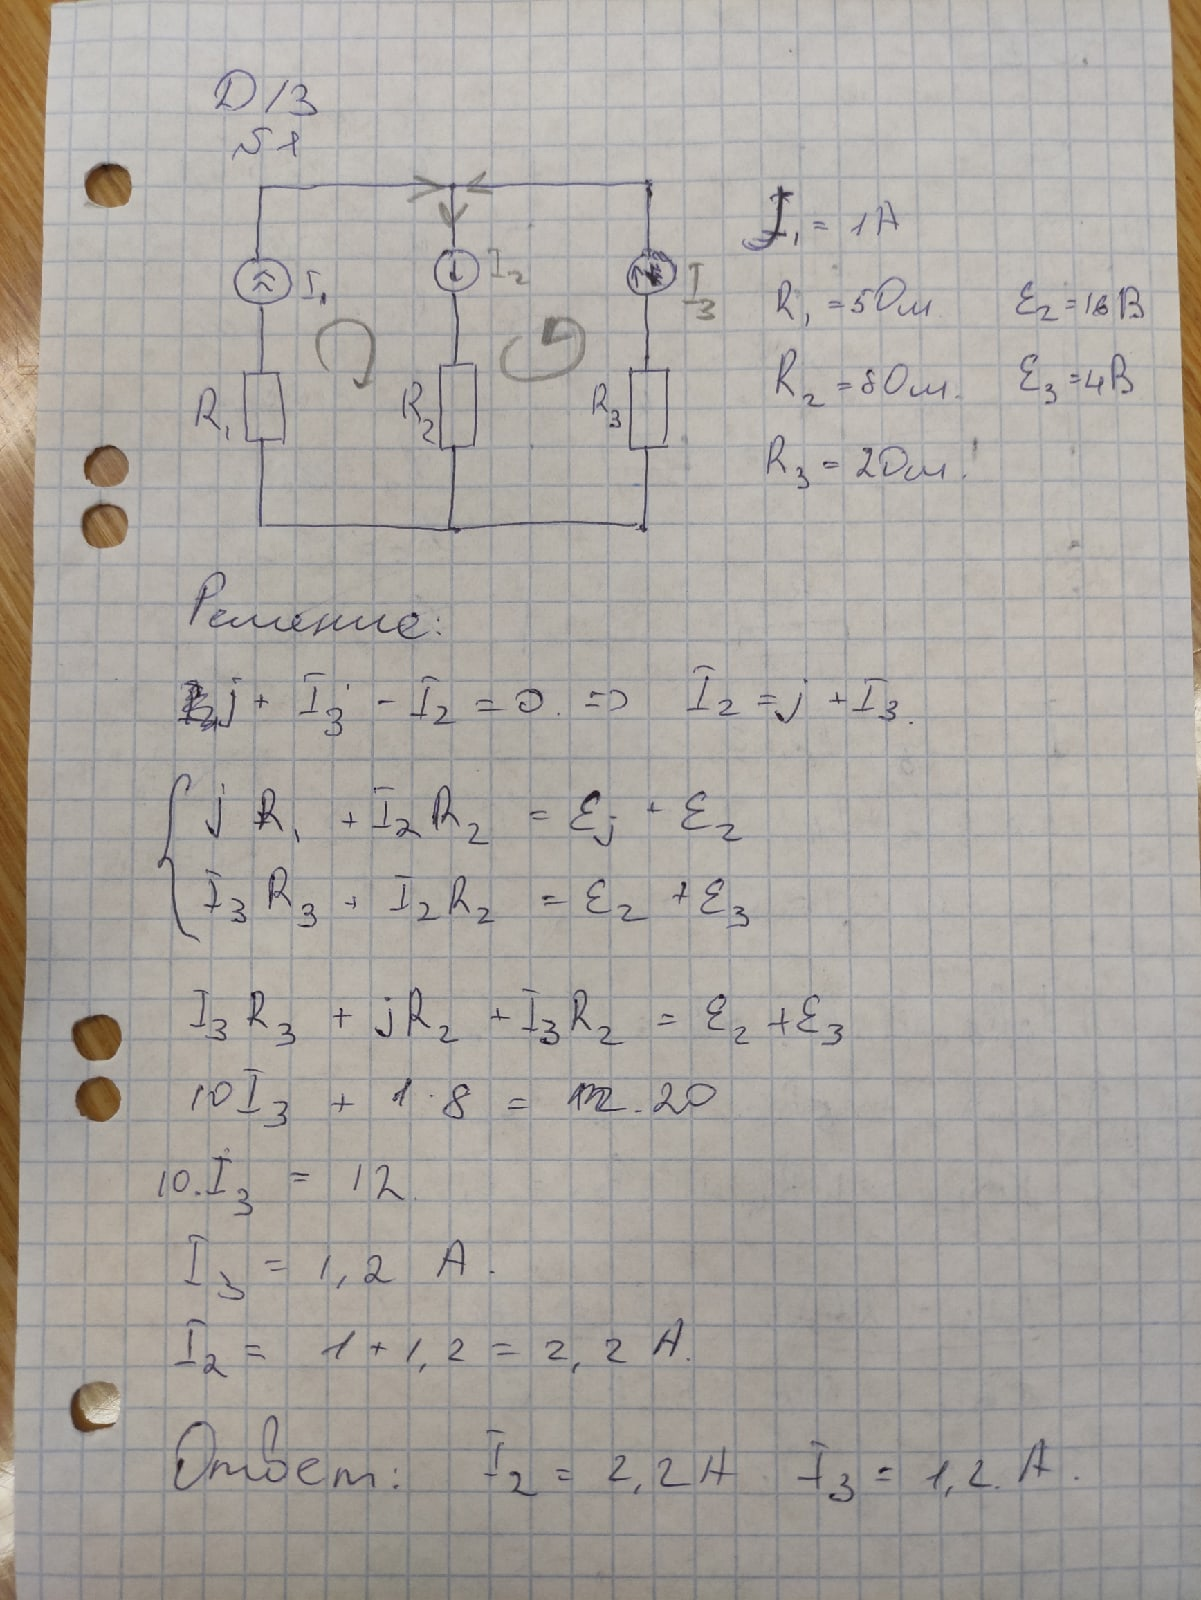 Д/З
№1
I₁
I₂
I₃
R₁
R₂
R₃
J₁ = 1А
R₁ = 5Ом
ℰ₂ = 16В
R₂ = 8Ом.
ℰ₃ = 4В
R₃ = 2Ом.
Решение:
j + I₃ - I₂ = 0. => I₂ = j + I₃.
j R₁ + I₂R₂ = ℰj + ℰ₂
I₃R₃ + I₂R₂ = ℰ₂ + ℰ₃
I₃R₃ + jR₂ + I₃R₂ = ℰ₂ + ℰ₃
10I₃ + 1·8 = 20
10·I₃ = 12
I₃ = 1,2 А.
I₂ = 1 + 1,2 = 2,2 А.
Ответ: I₂ = 2,2А I₃ = 1,2 А.